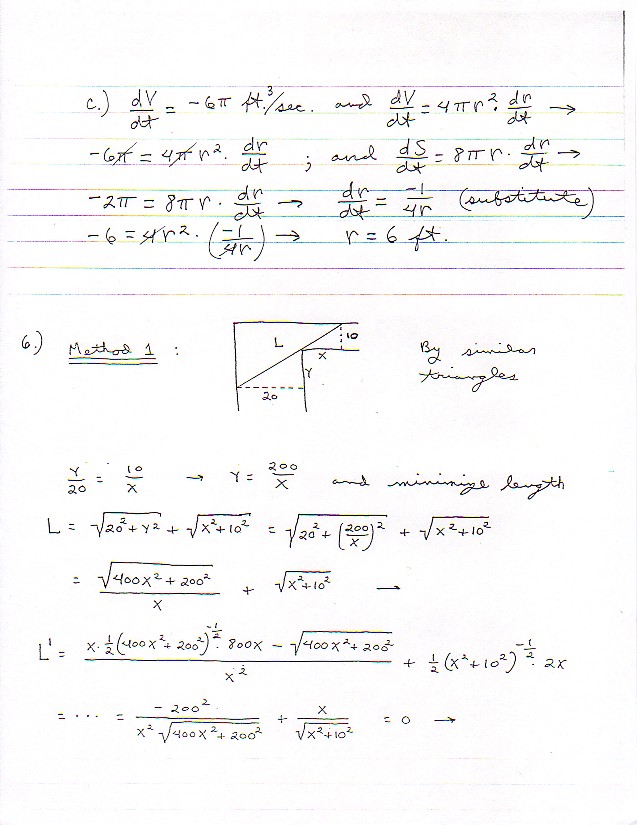 c.) dV/dt = -6π ft.³/sec. and dV/dt = 4πr² · dr/dt →
-6π = 4πr² · dr/dt ; and dS/dt = 8πr · dr/dt →
-2π = 8πr · dr/dt → dr/dt = -1/4r (substitute)
-6 = 4r² · (-1/4r) → r = 6 ft.
6.) Method 1 : L 10 x Y 20 By similar
triangles
Y/20 = 10/x → Y = 200/x and minimize length
L = √(20² + Y²) + √(x² + 10²) = √(20² + (200/x)²) + √(x² + 10²)
= √(400x² + 200²)/x + √(x² + 10²) →
L' = (x · ½(400x² + 200²)^(-½) · 800x - √(400x² + 200²))/x² + ½(x² + 10²)^(-½) · 2x
= ··· = -200²/(x²√(400x² + 200²)) + x/√(x² + 10²) = 0 →